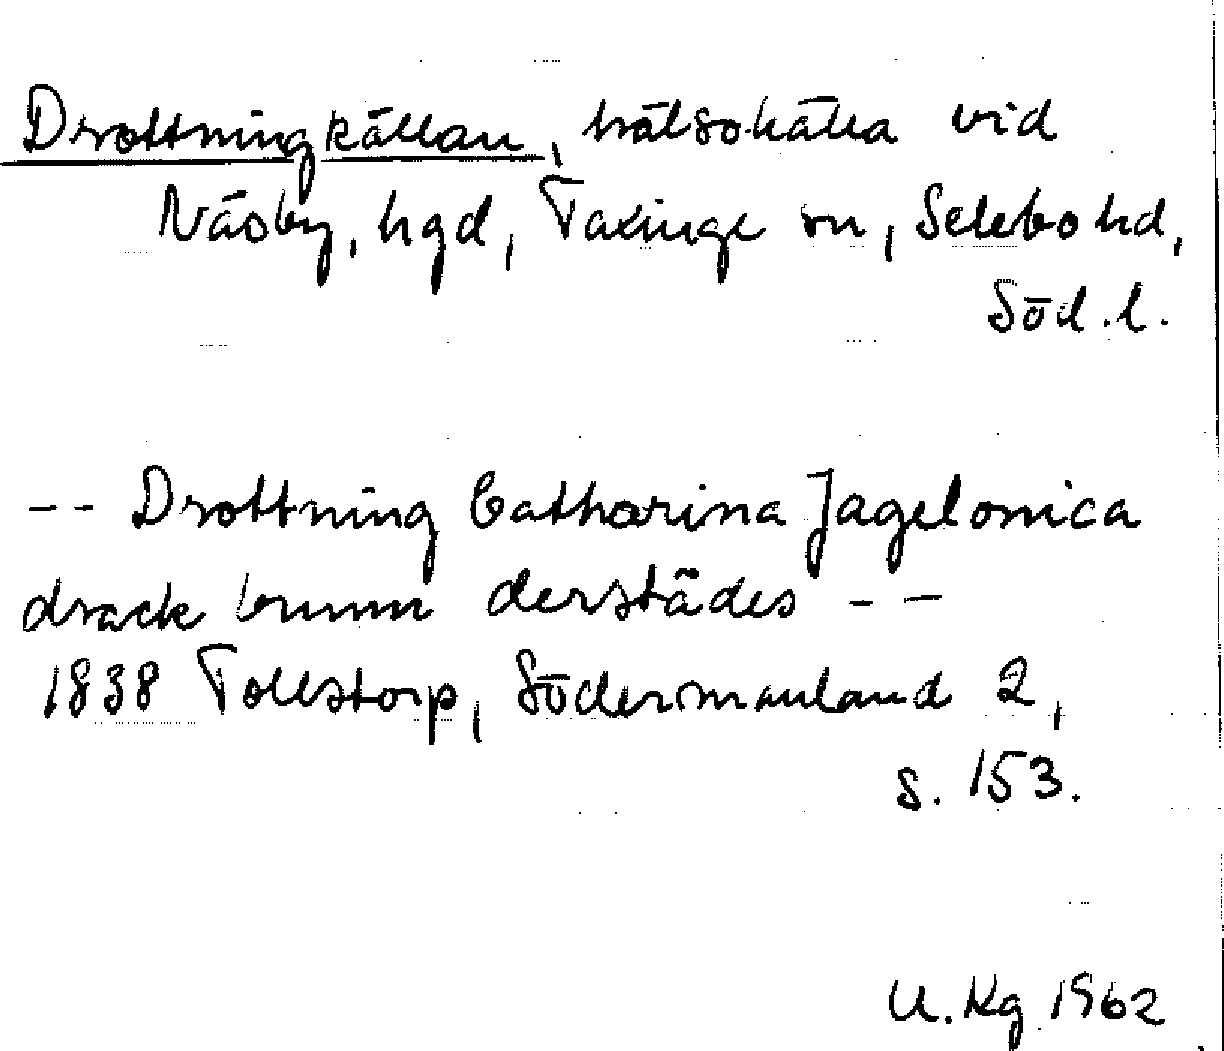 Drottningkällan, hälsokälla vid
Näsby, hgd, Taxinge sn, Selebo hd,
Söd. l.
-- Drottning Catharina Jagelonica
drack brunn derstädes --
1838 Tollstorp, Södermanland 2,
s. 153.
U. Kg 1962